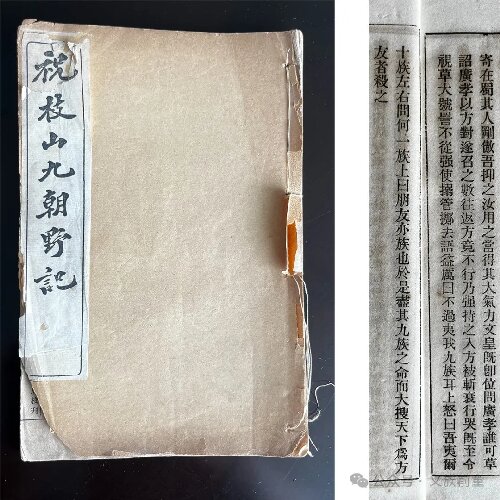 祝枝山九朝野記
寄在蜀其人剛傲吾抑之汝用之當得其大氣力文皇既即位問廣孝誰可草
詔廣孝以方對遂召之數往返方竟不行乃強持之入方被斬衰行哭既至令
視草大號詈不從強使搦管擲去語益厲曰不過夷我九族耳上怒曰吾夷
十族左右問何一族上曰朋友亦族也於是盡其九族之命而大搜天下為方
友者殺之
公众号